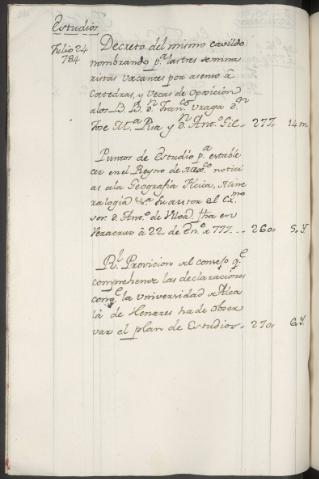 Estudios
Julio 24 Decreto del mismo cavildo
784 nombrando pª las tres semina
ristas vacantes por asenso á
Catedras, y Vecas de oposicion
alos B. B. dn Franco Uraga dn
Joe Mª Pia y dn Anto Gil - 277. 14
Puntos de Estudio pª estable
cer en el Reyno de notici
as ala Geografia Fisica, Mine
ralogia &ª su autor el Exmo
sor dn Anto de Ulloa fha en
Veracruz à 22 de Eno 777. - 260. 5.
Rl Provicion el consejo qe
comprehende las declaraciones
con qe la Universidad Alca
lá de Henares ha de obser
var el plan de Estudios. - 270 6.